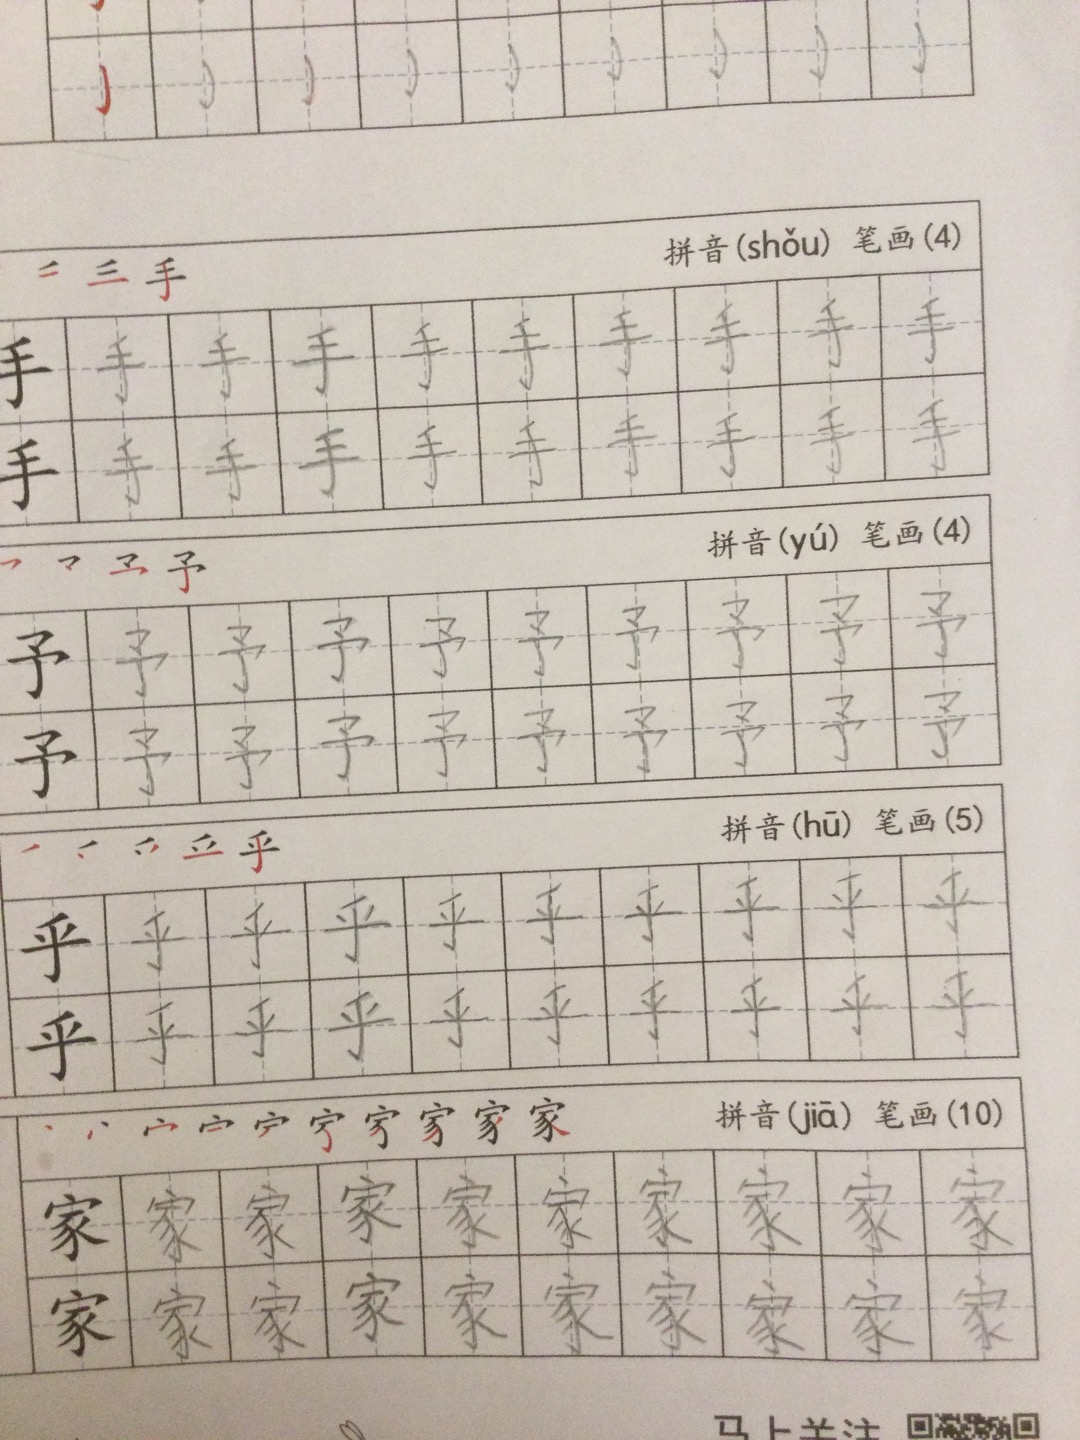 亅 亅 亅 亅 亅 亅 亅 亅 亅
二 三 手 拼音(shǒu) 笔画(4)
手 手 手 手 手 手 手 手 手 手
手 手 手 手 手 手 手 手 手 手
㇇ マ 予 拼音(yú) 笔画(4)
予 予 予 予 予 予 予 予 予 予
予 予 予 予 予 予 予 予 予 予
乎 拼音(hū) 笔画(5)
乎 乎 乎 乎 乎 乎 乎 乎 乎 乎
乎 乎 乎 乎 乎 乎 乎 乎 乎 乎
丶 宀 家 拼音(jiā) 笔画(10)
家 家 家 家 家 家 家 家 家 家
家 家 家 家 家 家 家 家 家 家
马上关注